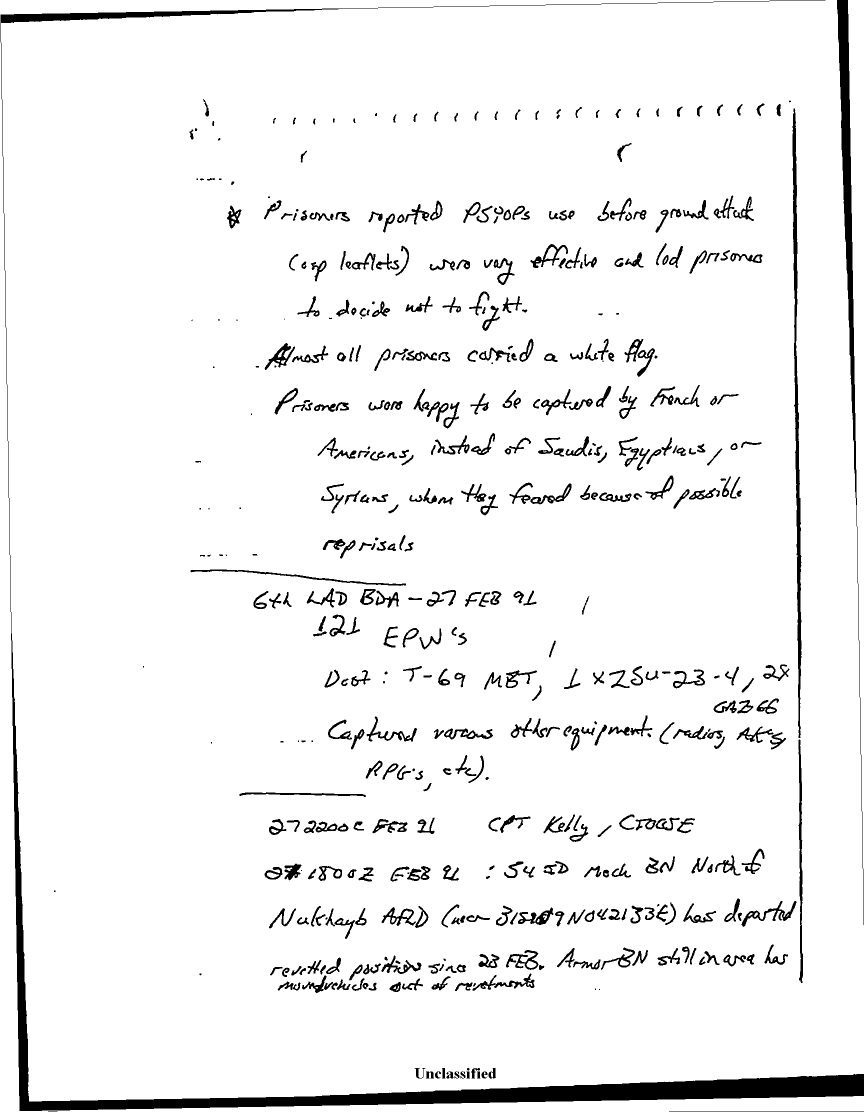 Prisoners reported PSYOPs use before ground attack
(esp leaflets) were very effective and led prisoners
to decide not to fight.
Almost all prisoners carried a white flag.
Prisoners were happy to be captured by French or
Americans, instead of Saudis, Egyptians, or
Syrians, whom they feared because of possible
reprisals
6th LAD BDA - 27 FEB 91
121 EPW's
Dest : T-69 MBT, 1 x ZSU-23-4, 2x
GAZ 66
Captured various other equipment. (radios, AK's,
RPG's, etc).
272200C FEB 91 CPT Kelly,
1800Z FEB 91 : 54 ID Mech BN North of
Nukhayb AFLD (near N042133E) has departed
revetted position since 23 FEB. Armor BN still in area has
moved vehicles out of revetments
Unclassified